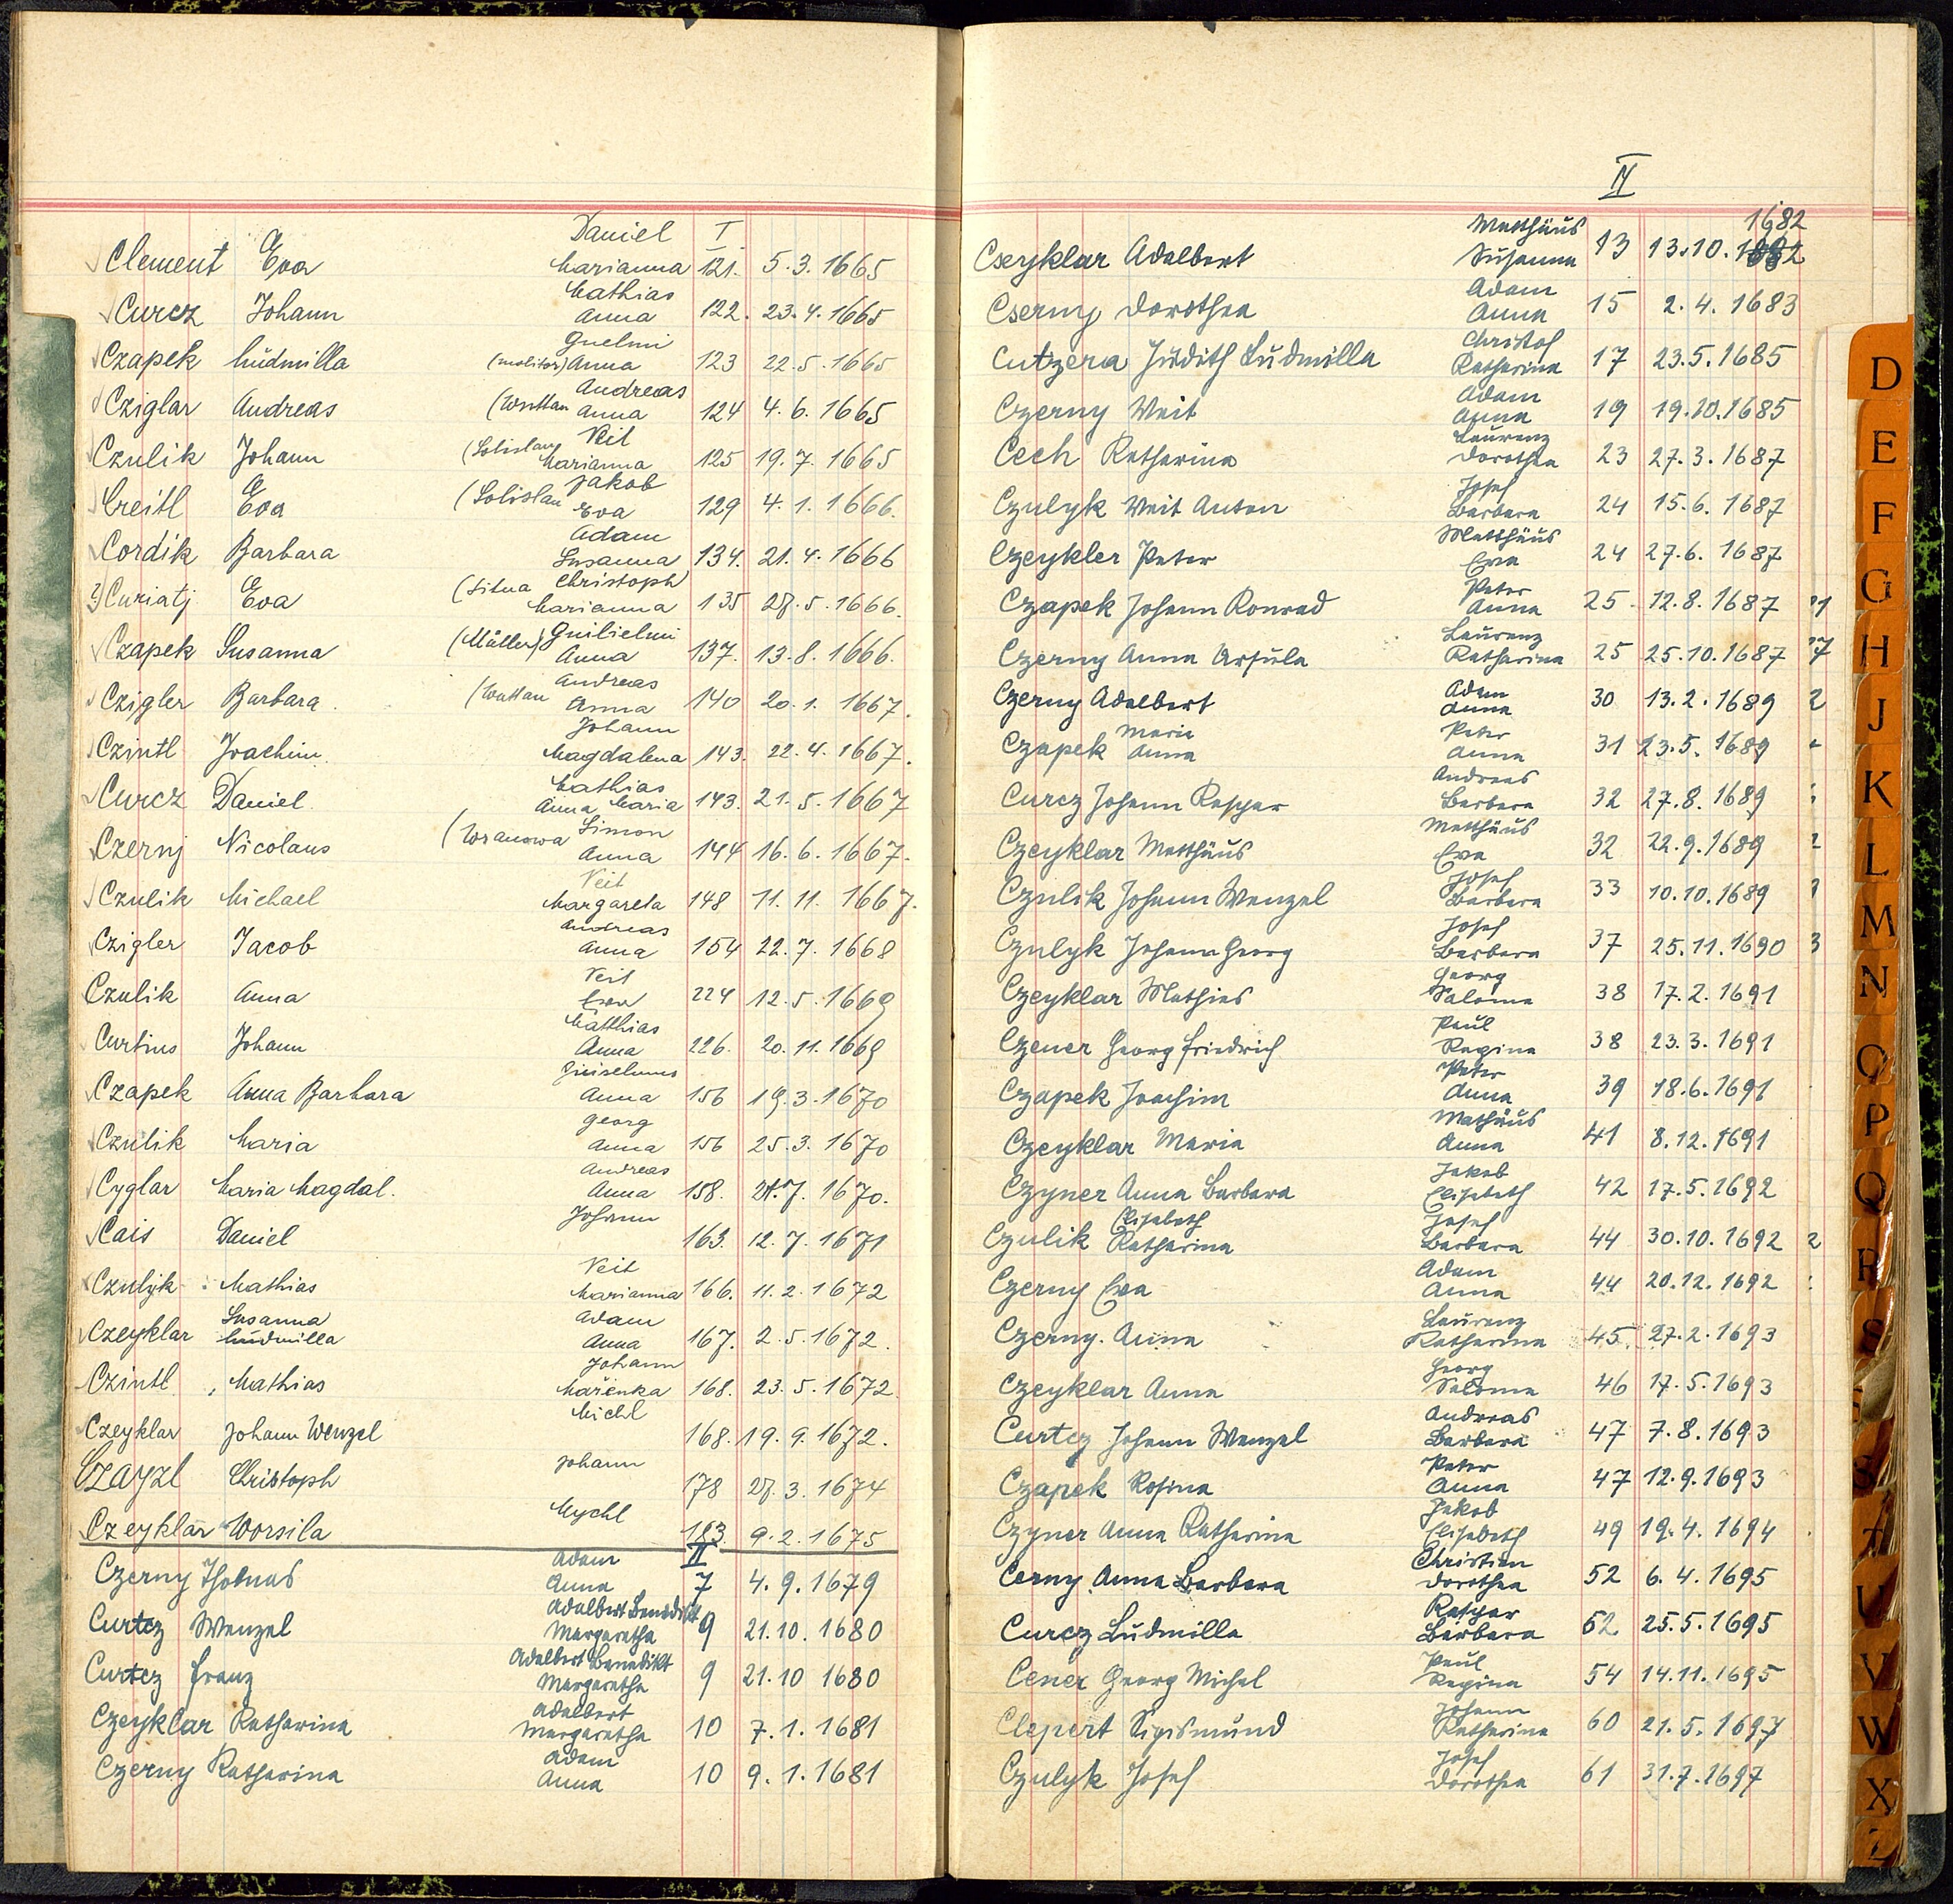 Daniel I
Clement Eva Marianna 121. 5.3.1665
Mathias
Curcz Johann Anna 122. 23.4.1665
Guelmi
Czapek Ludmilla (molitor) Anna 123 22.5.1665
Andreas
Cziglar Andreas (Wuttau Anna 124 4.6.1665
Veit
Czulik Johann (Solislau Marianna 125 19.7.1665
Jakob
Creitl Eva (Solislau Eva 129 4.1.1666.
Adam
Cordik Barbara Susanna 134. 21.4.1666
Christoph
?) Curiatj Eva (Situa Marianna 135 28.5.1666.
Guilielmi
Czapek Susanna (Müller) Anna 137. 13.8.1666.
Andreas
Czigler Barbara (Wuttau Anna 140 20.1.1667.
Johann
Czintl Joachim Magdalena 143. 22.4.1667.
Mathias
Curcz Daniel Anna Maria 143. 21.5.1667
Simon
Czernj Nicolaus (Wranowa Anna 144 16.6.1667.
Veit
Czulik Michael Margareta 148 11.11.1667.
Andreas
Czigler Jacob Anna 154 22.7.1668
Veit
Czulik Anna Eva 224 12.5.1669
Matthias
Curtius Johann Anna 226. 20.11.1669
Guiselmus
Czapek Anna Barbara Anna 156 19.3.1670
Georg
Czulik Maria Anna 156 25.3.1670
Andreas
Cyglar Maria Magdal. Anna 158. 21.7.1670.
Johann
Cais Daniel 163. 12.7.1671
Veit
Czulyk Mathias Marianna 166. 11.2.1672
Susanna Adam
Czeyklar Ludmilla Anna 167. 2.5.1672.
Johann
Czintl, Mathias Mařenka 168. 23.5.1672
Michl
Czeyklar Johann Wenzel 168. 19.9.1672.
Johann
Czayzl Christoph 178 28.3.1674
Mychl
Czeyklar Worsila 183. 9.2.1675
Adam II
Czerny Thomas Anna 7 4.9.1679
Adalbert Benedikt
Curtcz Wenzel Margaretha 9 21.10.1680
Adalbert Benedikt
Curtcz Franz Margaretha 9 21.10 1680
Adalbert
Czeyklar Katharina Margaretha 10 7.1.1681
Adam
Czerny Katharina Anna 10 9.1.1681
II
Matthäus 1682
Cseyklar Adalbert Susanna 13 13.10.
Adam
Cserny Dorothea Anna 15 2.4.1683
Christof
Cutzera Judith Ludmilla Katharina 17 23.5.1685
Adam
Czerny Weit Anna 19 19.10.1685
Laurenz
Cech Katharina Dorothea 23 27.3.1687
Josef
Czulyk Weit Anton Barbara 24 15.6.1687
Matthäus
Czeykler Peter Eva 24 27.6.1687
Peter
Czapek Johann Konrad Anna 25. 12.8.1687
Laurenz
Czerny Anna Ursula Katharina 25 25.10.1687
Adam
Czerny Adalbert Anna 30 13.2.1689
Maria Peter
Czapek Anna Anna 31 23.5.1689
Andreas
Curcz Johann Kaspar Barbara 32 27.8.1689
Matthäus
Czeyklar Matthäus Eva 32 22.9.1689
Josef
Czulik Johann Wenzel Barbara 33 10.10.1689
Josef
Czulyk Johann Georg Barbara 37 25.11.1690
Georg
Czeyklar Mathias Salome 38 17.2.1691
Paul
Czener Georg Friedrich Regina 38 23.3.1691
Peter
Czapek Joachim Anna 39 18.6.1691
Mathäus
Czeyklar Maria Anna 41 8.12.1691
Jakob
Czyner Anna Barbara Elisabeth 42 17.5.1692
Elisabeth Josef
Czulik Katharina Barbara 44 30.10.1692
Adam
Czerny Eva Anna 44 20.12.1692
Laurenz
Czerny. Anna Katharina 45. 27.2.1693
Georg
Czeyklar Anna Salome 46 17.5.1693
Andreas
Curtcz Johann Wenzel Barbara 47 7.8.1693
Peter
Czapek Rosina Anna 47 12.9.1693
Jakob
Czyner Anna Katharina Elisabeth 49 19.4.1694
Christian
Cerny Anna Barbara Dorothea 52 6.4.1695
Kaspar
Curcz Ludmilla Barbara 52 25.5.1695
Paul
Cener Georg Michael Regina 54 14.11.1695
Johann
Clepert Sigismund Katharina 60 21.5.1697
Josef
Czulyk Josef Dorothea 61 31.7.1697
D
E
F
G
H
J
K
L
M
N
O
P
Q
R
S
T
U
V
W
X
Z